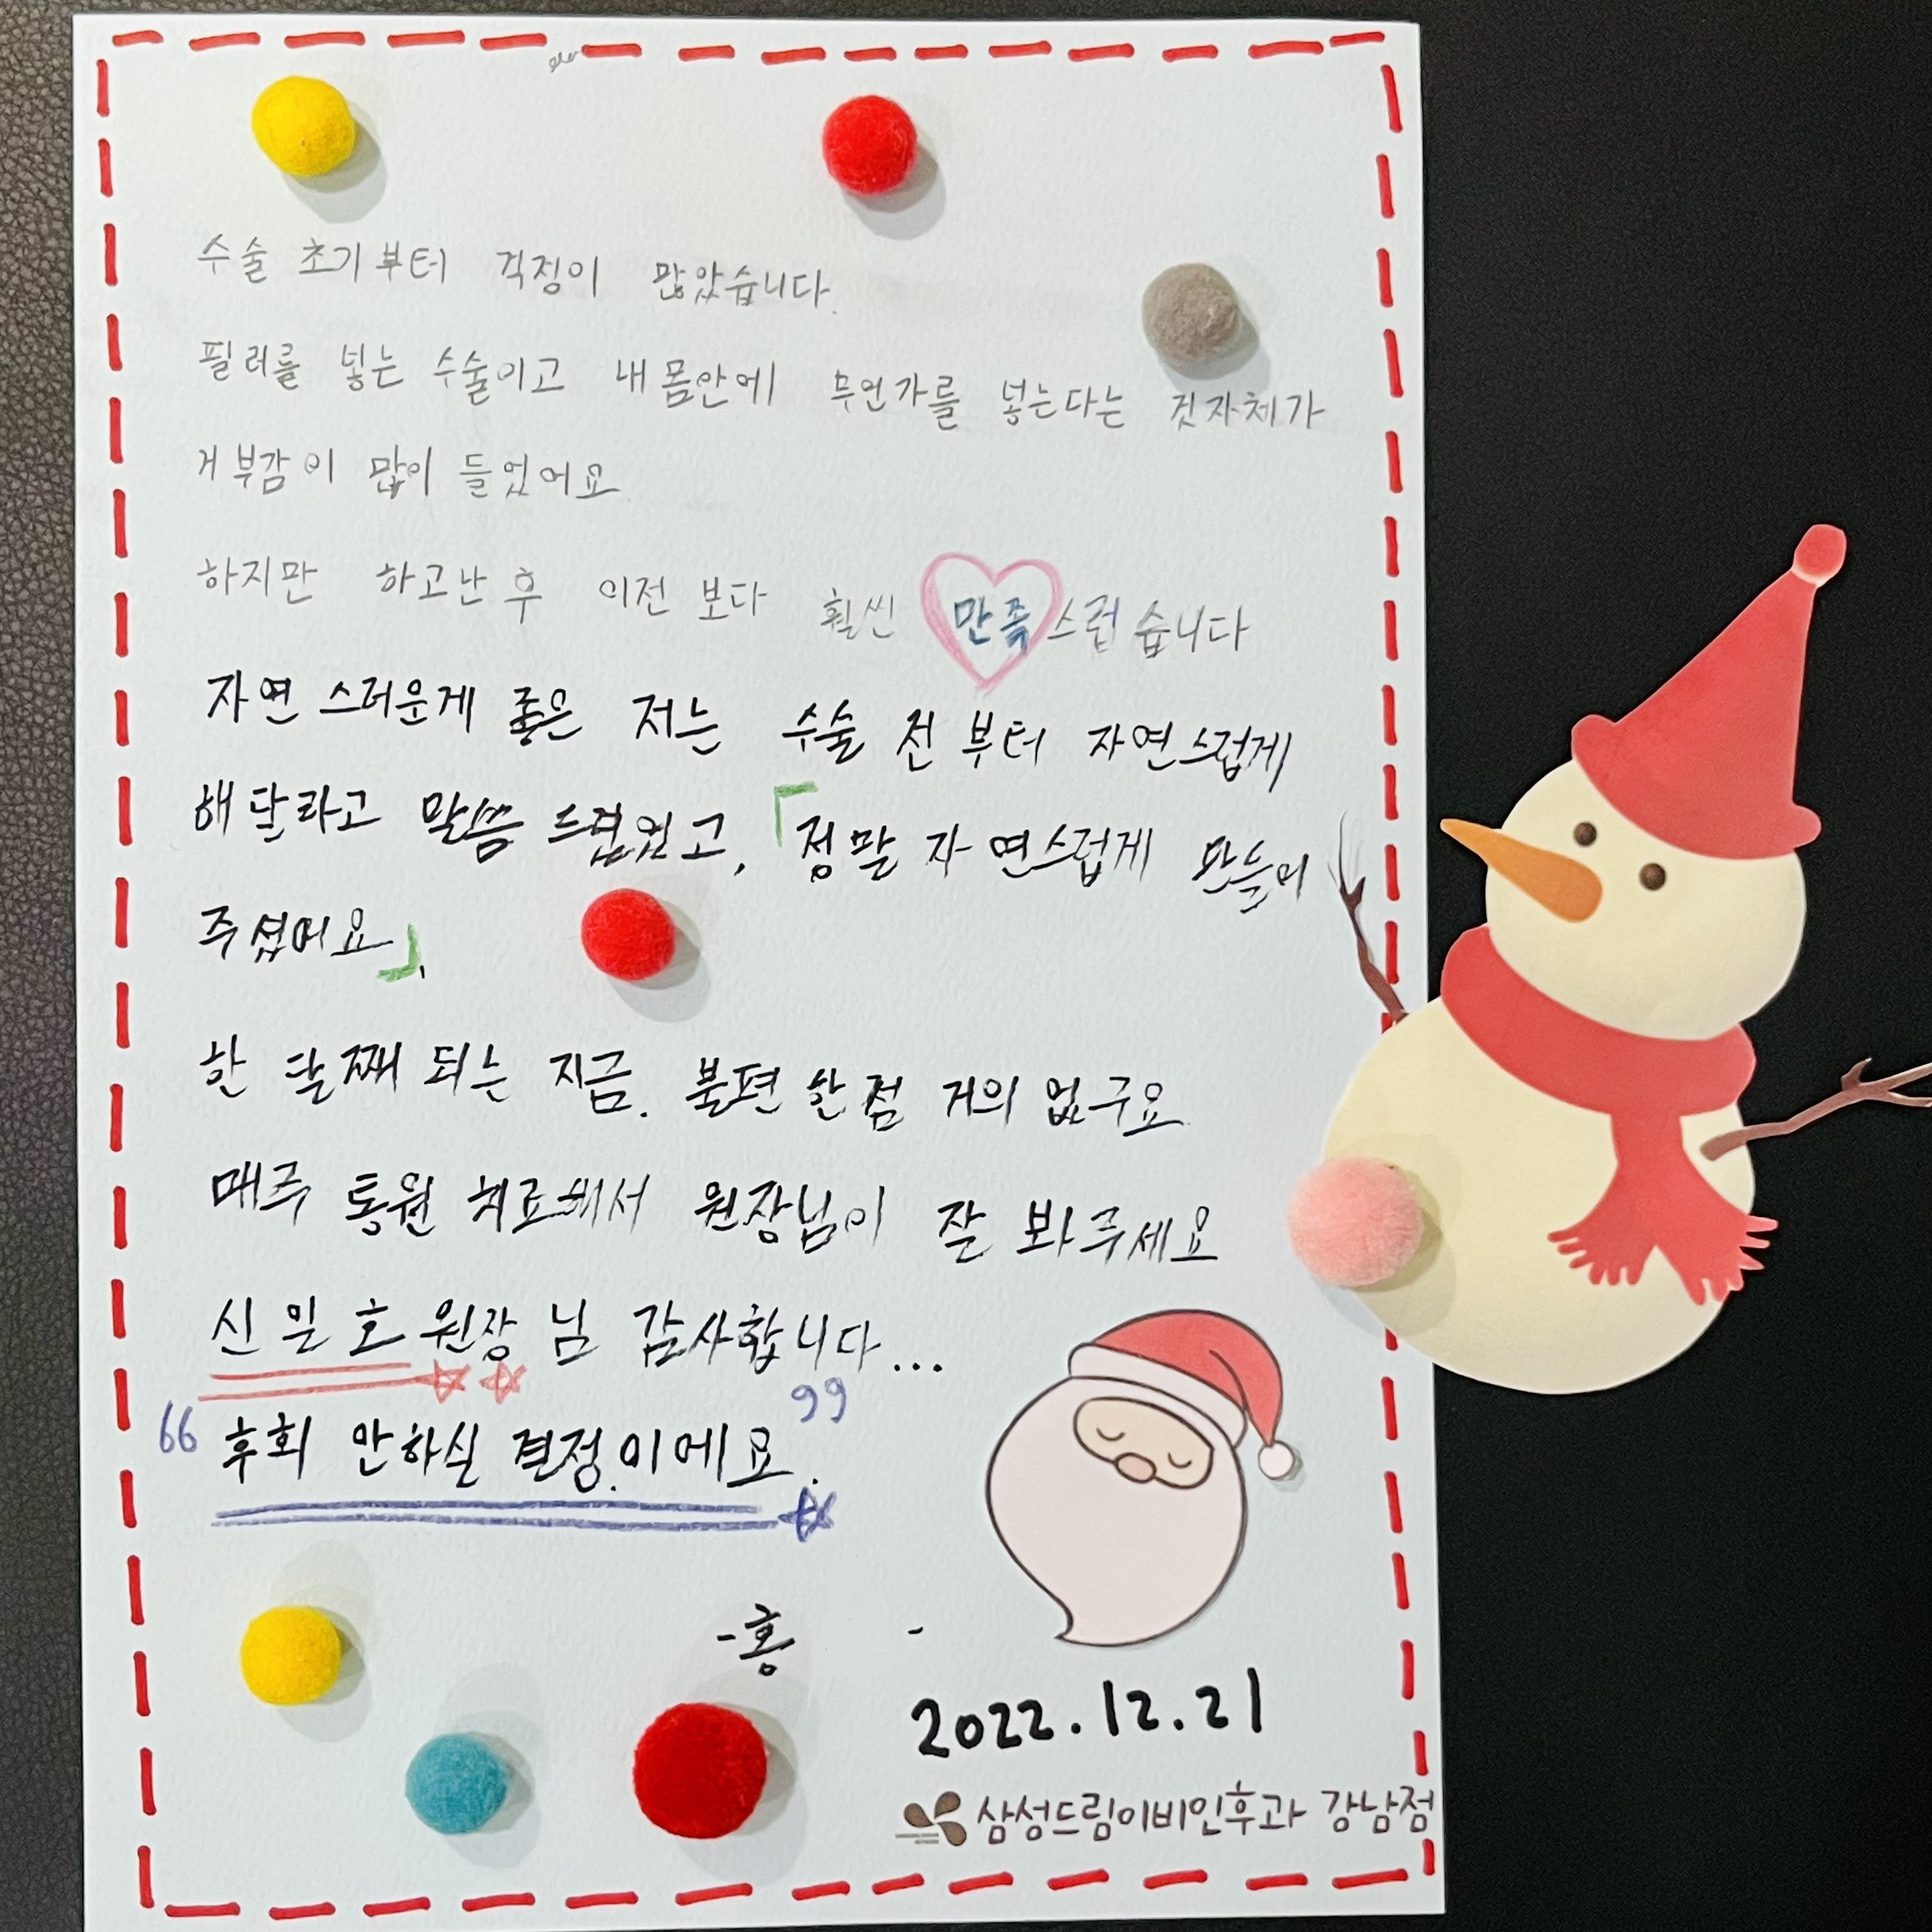 수술 초기부터 걱정이 많았습니다.
필러를 넣는 수술이고 내 몸안에 무언가를 넣는다는 것자체가
거부감이 많이 들었어요
하지만 하고난 후 이전 보다 훨씬 만족스럽습니다
자연스러운게 좋은 저는 수술 전부터 자연스럽게
해달라고 말씀 드렸었고, 「정말 자연스럽게 만들어
주셨어요」.
한 달째 되는 지금. 불편한점 거의 없구요
매주 통원 치료해서 원장님이 잘 봐주세요
신일호 원장님 감사합니다...
"후회 안하실 결정.이에요."
-홍 -
2022.12.21
삼성드림이비인후과 강남점